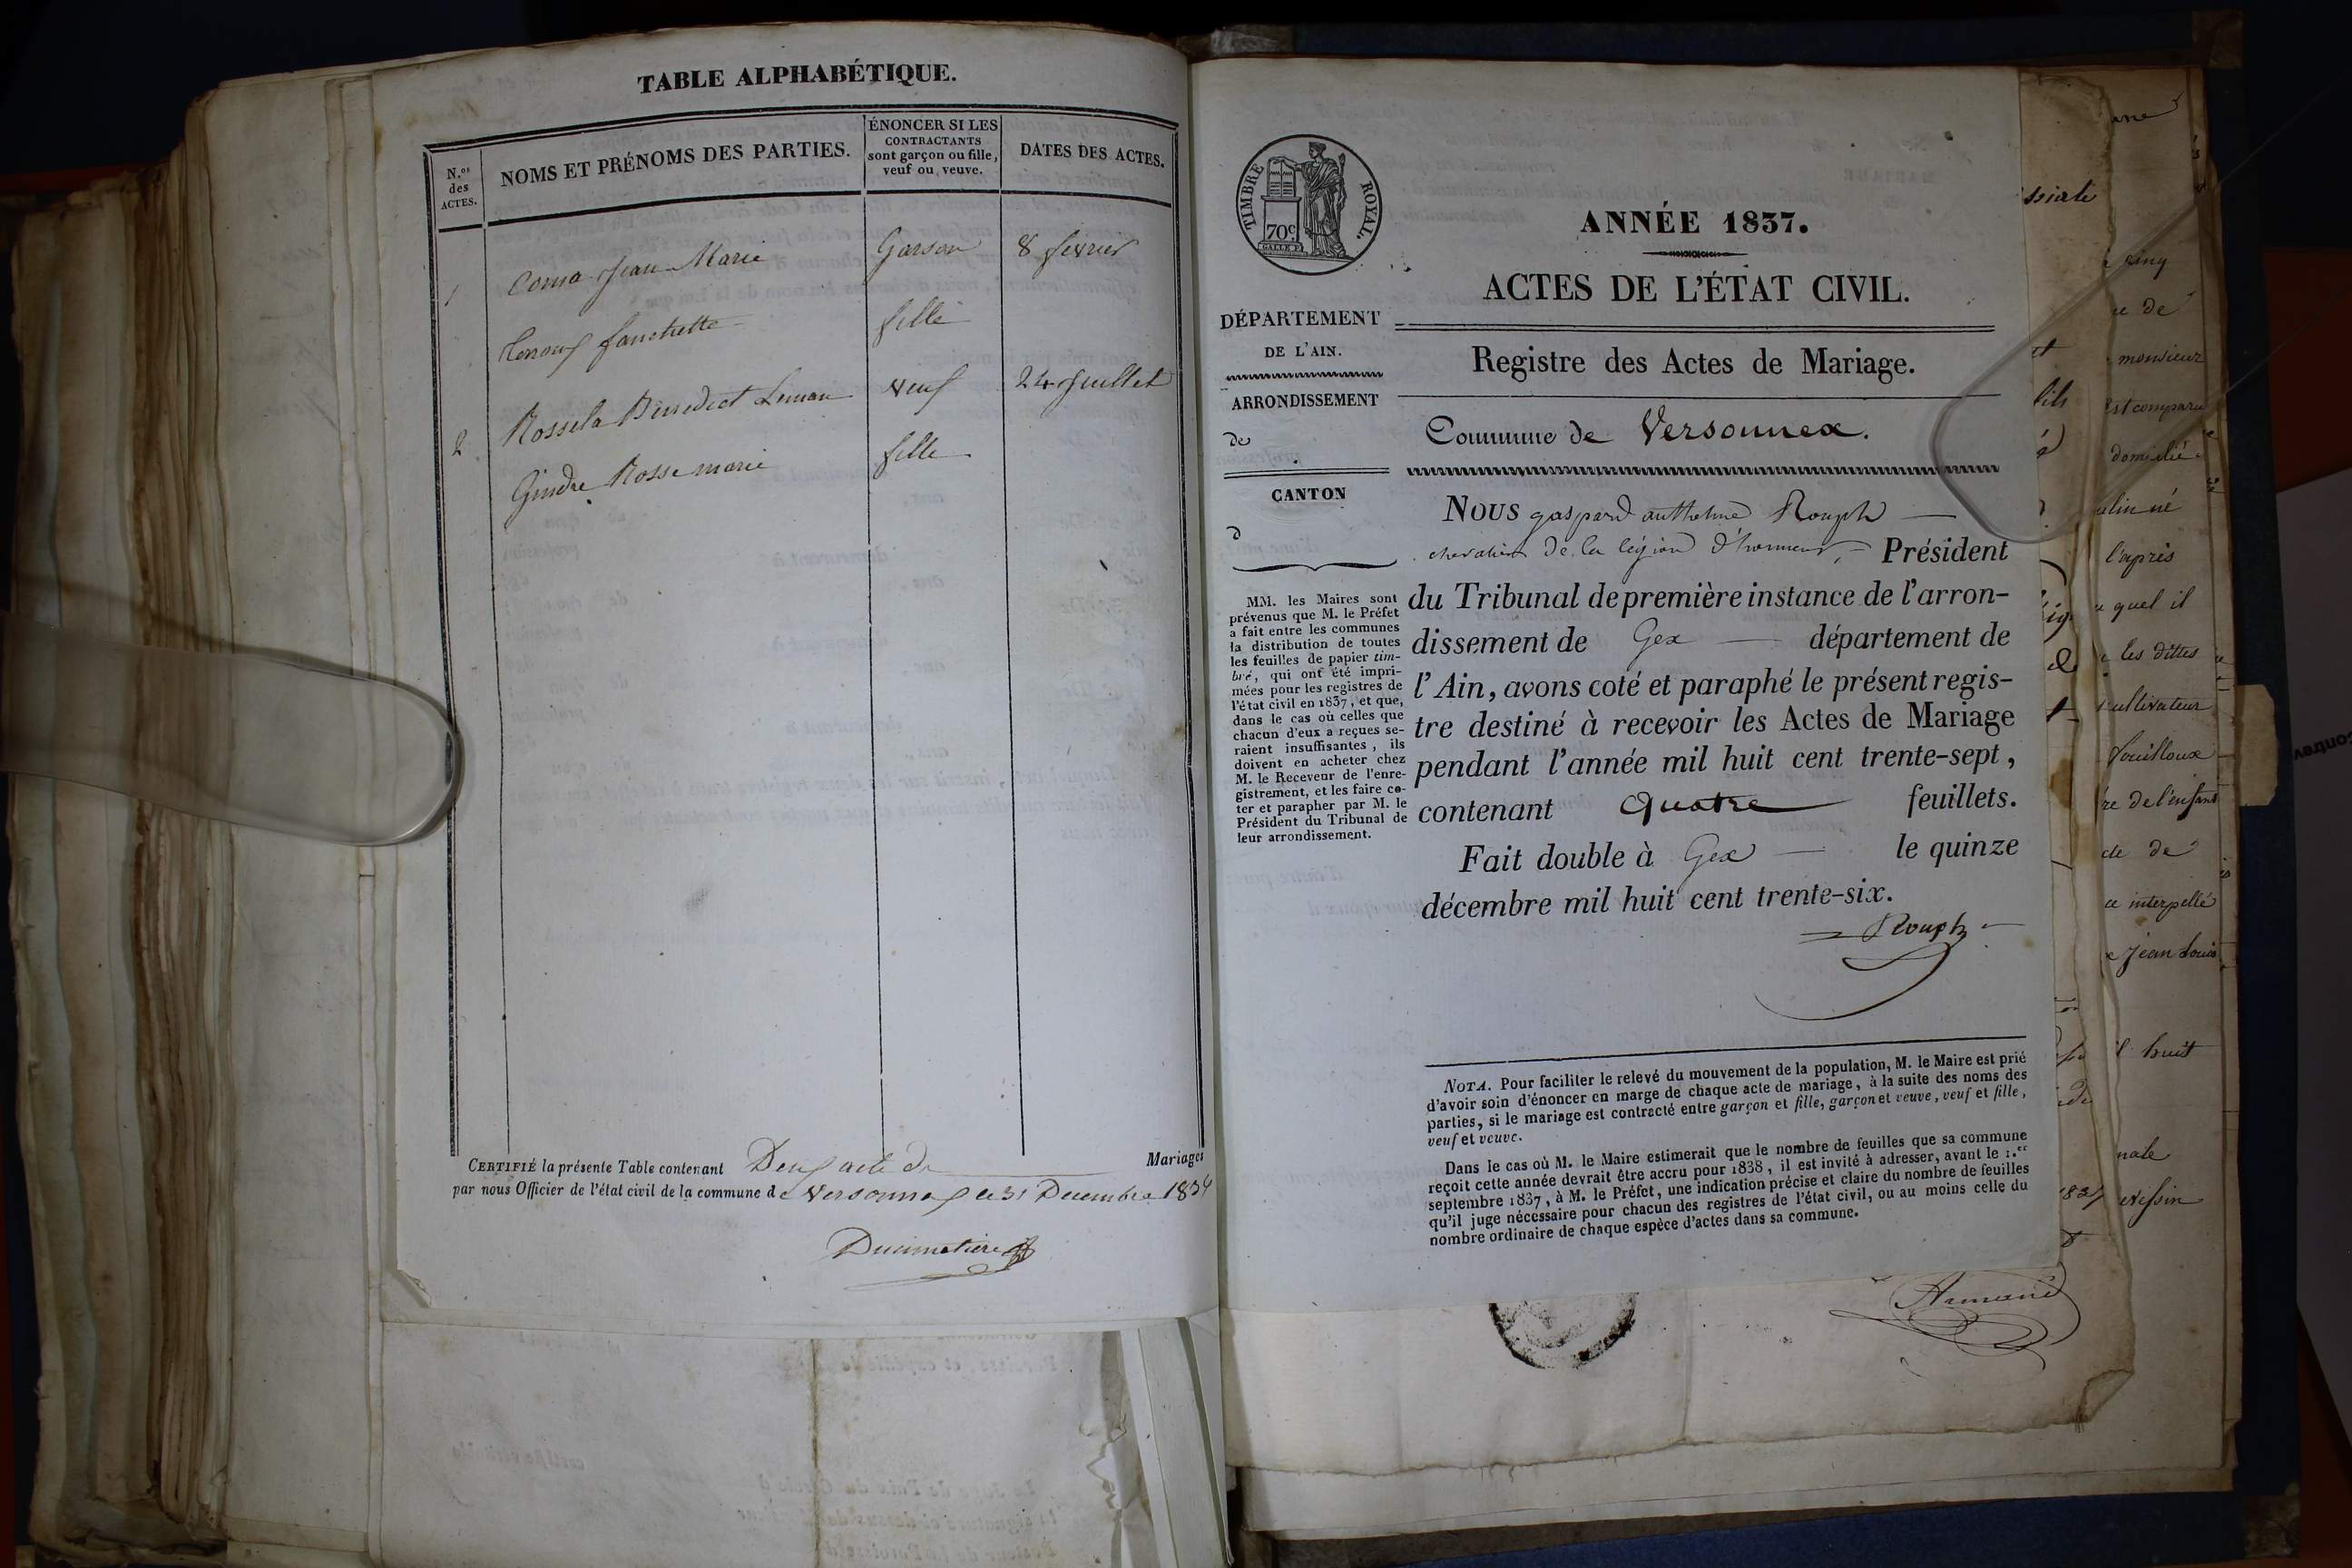 TABLE ALPHABÉTIQUE.
N.os
des
ACTES.
NOMS ET PRÉNOMS DES PARTIES.
ÉNONCER SI LES
CONTRACTANTS
sont garçon ou fille,
veuf ou veuve.
DATES DES ACTES.
1 Corna Jean Marie Garson 8 fevrier
fanchette fille
2 Rossela Benedict veuf 24 Juillet
Gindre Rosse marie fille
CERTIFIÉ la présente Table contenant Deux acte de Mariages
par nous Officier de l'état civil de la commune de Versonnex le 31 Decembre
Ducimetiere
TIMBRE ROYAL.
70c.
DÉPARTEMENT
DE L'AIN.
ARRONDISSEMENT
de
CANTON
d
MM. les Maires sont
prévenus que M. le Préfet
a fait entre les communes
la distribution de toutes
les feuilles de papier tim-
bré, qui ont été impri-
mées pour les registres de
l'état civil en 1837, et que,
dans le cas où celles que
chacun d'eux a reçues se-
raient insuffisantes, ils
doivent en acheter chez
M. le Receveur de l'enre-
gistrement, et les faire co-
ter et parapher par M. le
Président du Tribunal de
leur arrondissement.
ANNÉE 1837.
ACTES DE L'ÉTAT CIVIL.
Registre des Actes de Mariage.
Commune de Versonnex.
NOUS gaspard anthelme Rouph
chevalier de la légion d'honneur, Président
du Tribunal de première instance de l'arron-
dissement de Gex département de
l'Ain, avons coté et paraphé le présent regis-
tre destiné à recevoir les Actes de Mariage
pendant l'année mil huit cent trente-sept,
contenant quatre feuillets.
Fait double à Gex le quinze
décembre mil huit cent trente-six.
Rouph
NOTA. Pour faciliter le relevé du mouvement de la population, M. le Maire est prié
d'avoir soin d'énoncer en marge de chaque acte de mariage, à la suite des noms des
parties, si le mariage est contracté entre garçon et fille, garçon et veuve, veuf et fille,
veuf et veuve.
Dans le cas où M. le Maire estimerait que le nombre de feuilles que sa commune
reçoit cette année devrait être accru pour 1838, il est invité à adresser, avant le 1.er
septembre 1837, à M. le Préfet, une indication précise et claire du nombre de feuilles
qu'il juge nécessaire pour chacun des registres de l'état civil, ou au moins celle du
nombre ordinaire de chaque espèce d'actes dans sa commune.
Armand
cinq
de
monsieur
est comparu
domicilié
né
l'après
quel il
les dittes
cultivateur
fouilloux
de l'enfant
de
interpellé
Jean Louis
huit